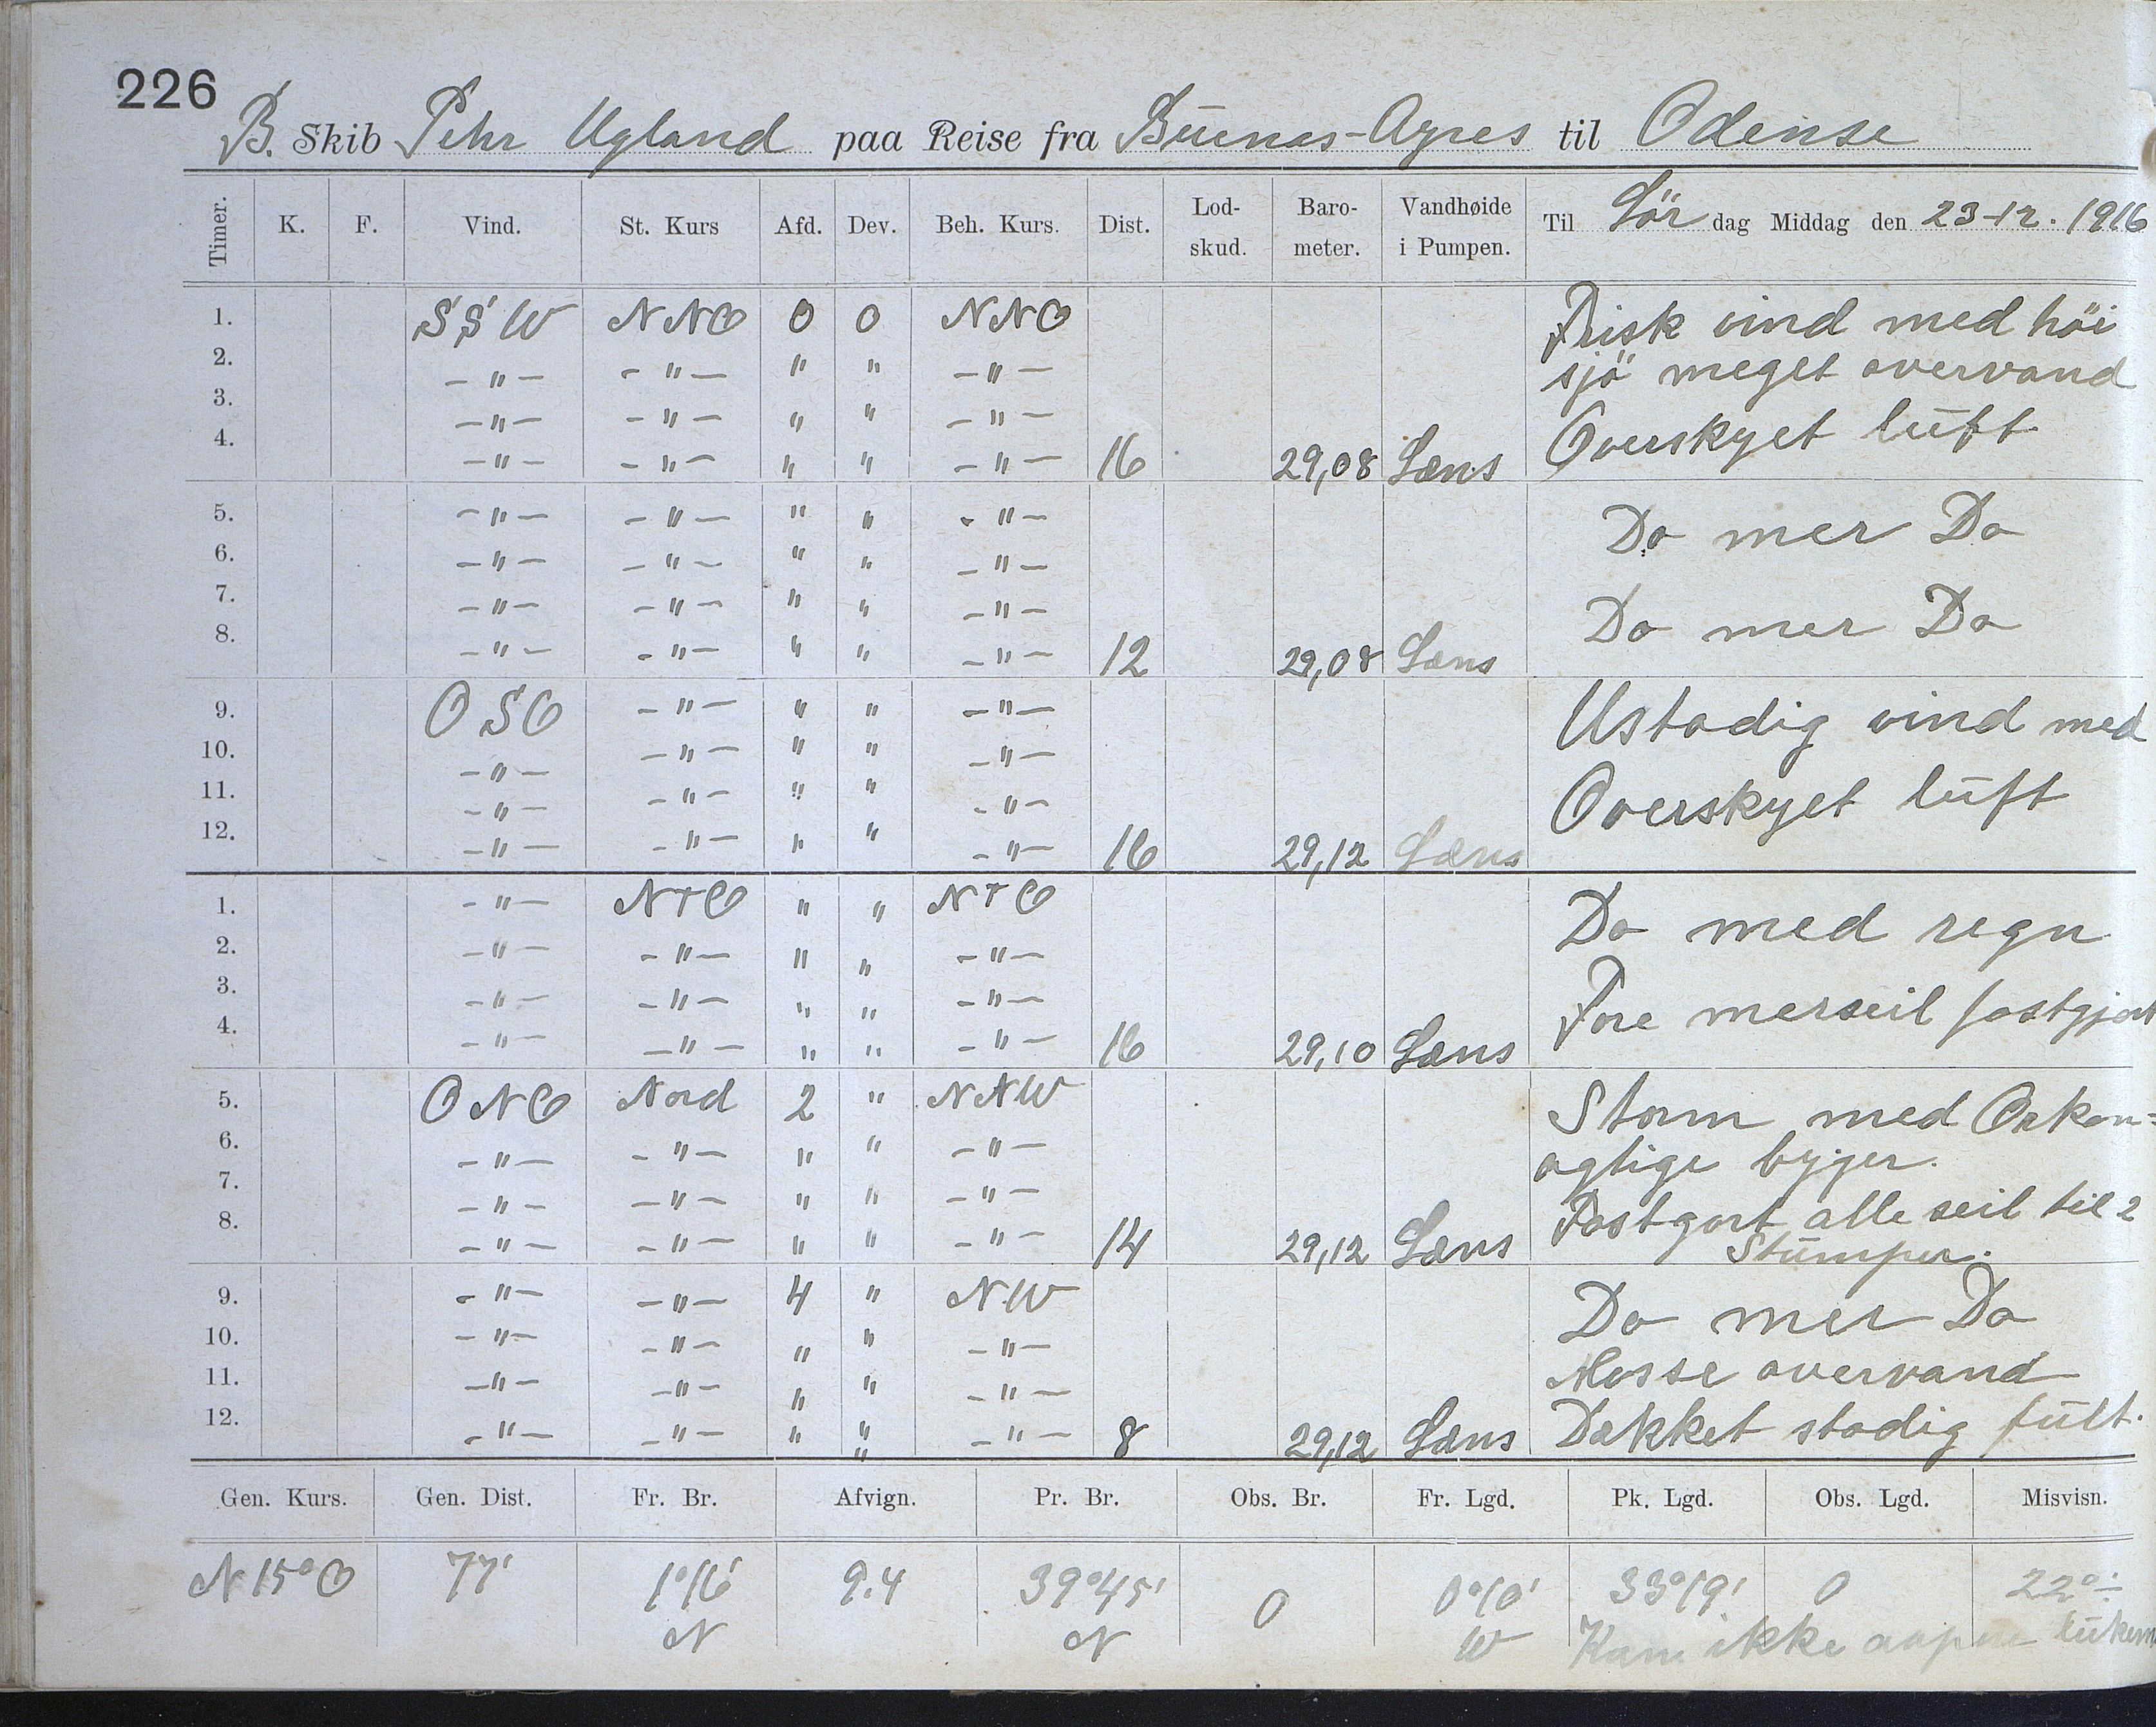 226
B. Skib Pehr Ugland paa Reise fra Buenos-Ayres til Odense
Timer. K. F. Vind. St. Kurs Afd. Dev. Beh. Kurs. Dist. Lod-skud. Baro-meter. Vandhøide i Pumpen. Til Lör dag Middag den 23-12. 1916
1. SSW NNO 0 0 NNO Frisk vind med höi
2. -"- -"- " " -"- sjö meget overvand
3. -"- -"- " " -"- Overskyet luft
4. -"- -"- " " -"- 16 29,08 Læns
5. -"- -"- " " -"- Do mer Do
6. -"- -"- " " -"-
7. -"- -"- " " -"- Do mer Do
8. -"- -"- " " -"- 12 29,08 Læns
9. OSO -"- " " -"- Ustadig vind med
10. -"- -"- " " -"-
11. -"- -"- " " -"- Overskyet luft
12. -"- -"- " " -"- 16 29,12 Læns
1. -"- NTO " " NTO Do med regn
2. -"- -"- " " -"-
3. -"- -"- " " -"- Fore merseil fastgjort
4. -"- -"- " " -"- 16 29,10 Læns
5. ONO Nord 2 " NNW Storm med Orkan=
6. -"- -"- " " -"- agtige byger.
7. -"- -"- " " -"- Fastgort alle seil til 2
8. -"- -"- " " -"- 14 29,12 Læns Stumper.
9. -"- -"- 4 " NW Do mer Do
10. -"- -"- " " -"-
11. -"- -"- " " -"- Masse overvand
12. -"- -"- " " -"- 8 29,12 Læns Dækket stadig fült.
Gen. Kurs. Gen. Dist. Fr. Br. Afvign. Pr. Br. Obs. Br. Fr. Lgd. Pk. Lgd. Obs. Lgd. Misvisn.
N 15° O 77' 1°16' 9.4 39°45' 0 0°10' 33°19' 0 22°÷
N N W Kan ikke aapne lukern